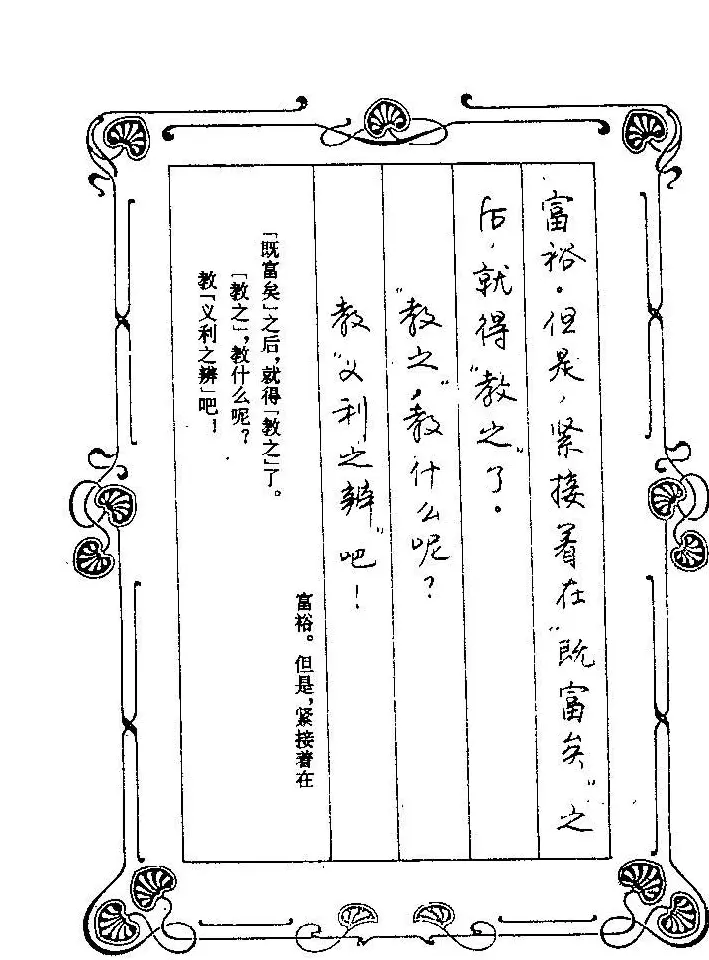 富裕。但是，紧接着在“既富矣”之
后，就得“教之”了。
“教之”，教什么呢？
教“义利之辨”吧！
富裕。但是，紧接着在
「既富矣」之后，就得「教之」了。
「教之」，教什么呢？
教「义利之辨」吧！